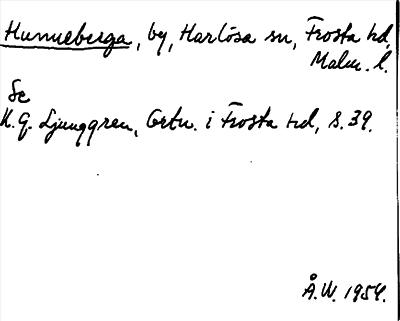 Hunneberga, by, Harlösa sn, Frosta hd,
Malm. l.
Se
K.G. Ljunggren, Ortn. i Frosta hd, s. 39.
Å.W. 1954.